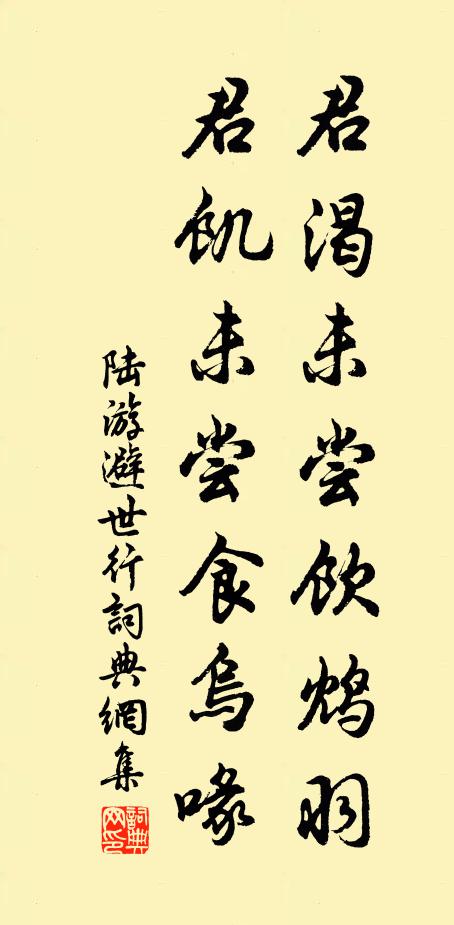 君渴未尝饮鸩羽
君饥未尝食乌喙
陆游避世行詞典網集
詞典网印